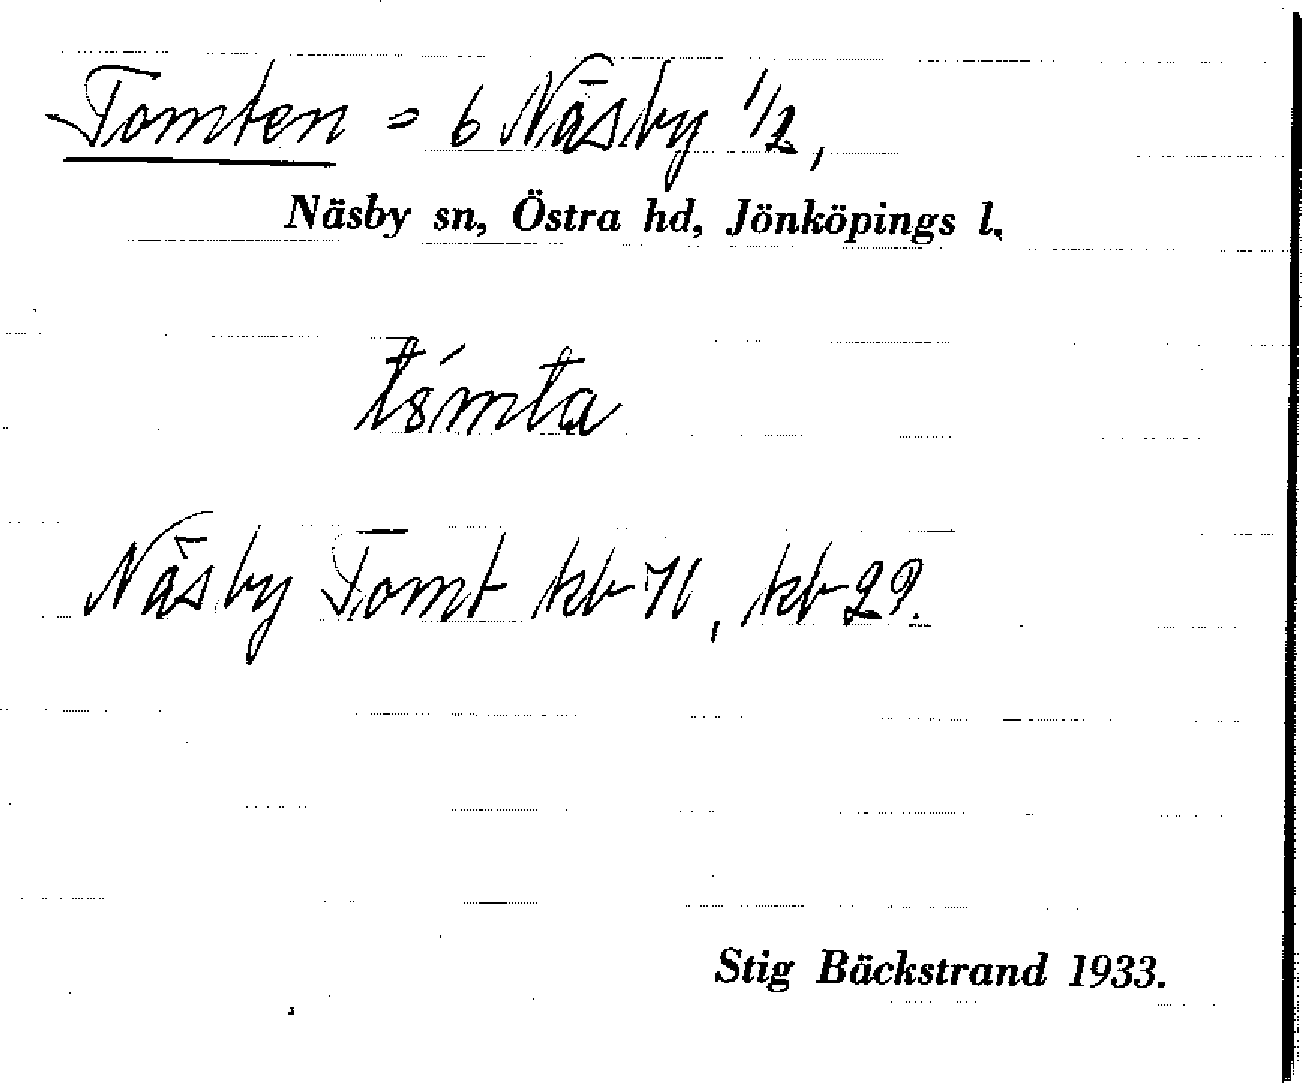 Tomten = 6 Näsby 1/2,
Näsby sn, Östra hd, Jönköpings l.
Näsby Tomt kb 71, kb 29.
Stig Bäckstrand 1933.